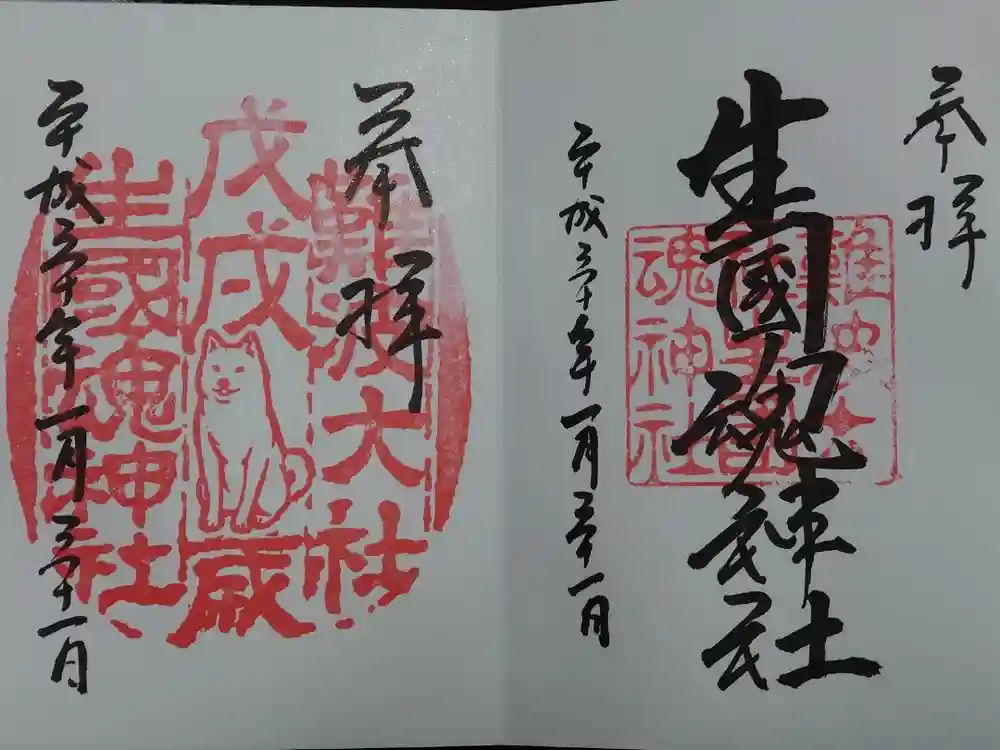 奉拝
生國魂神社
難波大社
生國魂神社
平成三十年一月三十一日
奉拝
難波大社
戊戌歳
生國魂神社
平成三十年一月三十一日